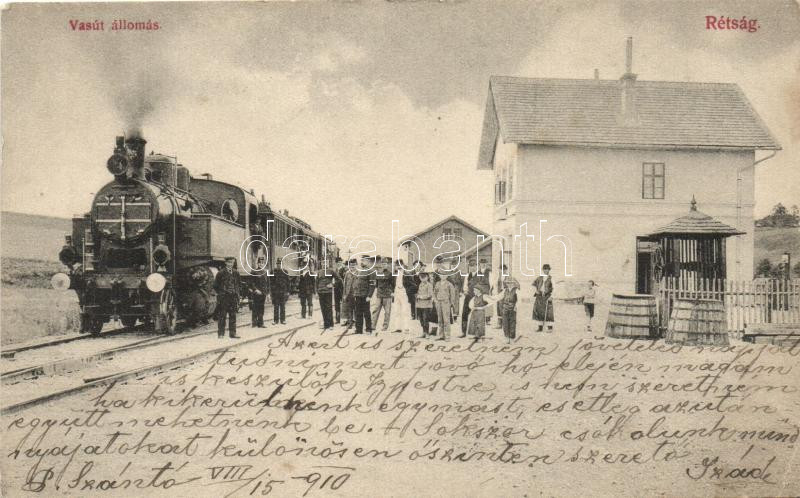 Vasút állomás.
Rétság.
darabanth.com
Azert is szeretném jöveteled napját
tudni mert jövő hó elején magam
is készülök Ipestre s nem szeretném
ha kikerülnenk egymást, esetleg azután
együtt mehetnenk be. Sokszor csókolunk mind
nyájatokat különösen őszinten szerető
P. Szántó VIII/15-910 Izád